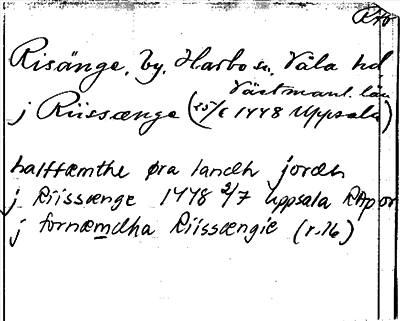 Risänge, by, Harbo sn, Våla hd
Västmanl. län
j Riissænge (25/6 1448 Uppsala)
halffæmthe øra landh jordh
j Riissænge 1448 2/7 Uppsala RAp or
j fornæmdha Riissængie (r. 16)